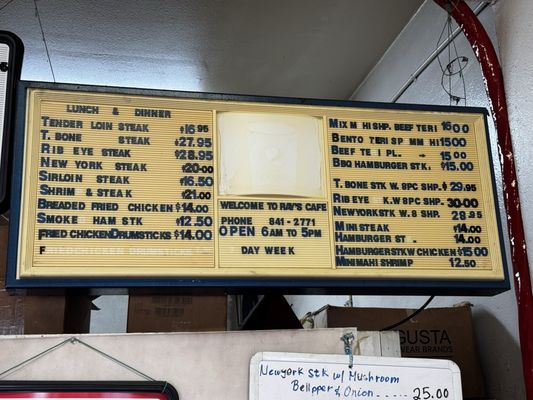 LUNCH & DINNER
TENDER LOIN STEAK $16.95
T. BONE STEAK $27.95
RIB EYE STEAK $28.95
NEW YORK STEAK $20.00
SIRLOIN STEAK $16.50
SHRIM & STEAK $21.00
BREADED FRIED CHICKEN $14.00
SMOKE HAM STK $12.50
FRIED CHICKEN DRUMSTICKS $14.00
F
WELCOME TO RAY'S CAFE
PHONE 841-2771
OPEN 6 AM TO 5 PM
DAY WEEK
MIX M HI SHP. BEEF TERI 16.00
BENTO TERI SP MM HI 15.00
BEEF TE I PL. - 15.00
BBQ HAMBURGER STK. $15.00
T. BONE STK W. 8PC SHP. $29.95
RIB EYE K.W 8PC SHP. 30.00
NEWYORK STK W. 8 SHP. 28.95
MINI STEAK $14.00
HAMBURGER ST. 14.00
HAMBURGER STK W CHICKEN $15.00
MINI MAHI SHRIMP 12.50
GUSTA
WEAR BRANDS
Newyork Stk w/ Mushroom
Bellpper & Onion ..... 25.00